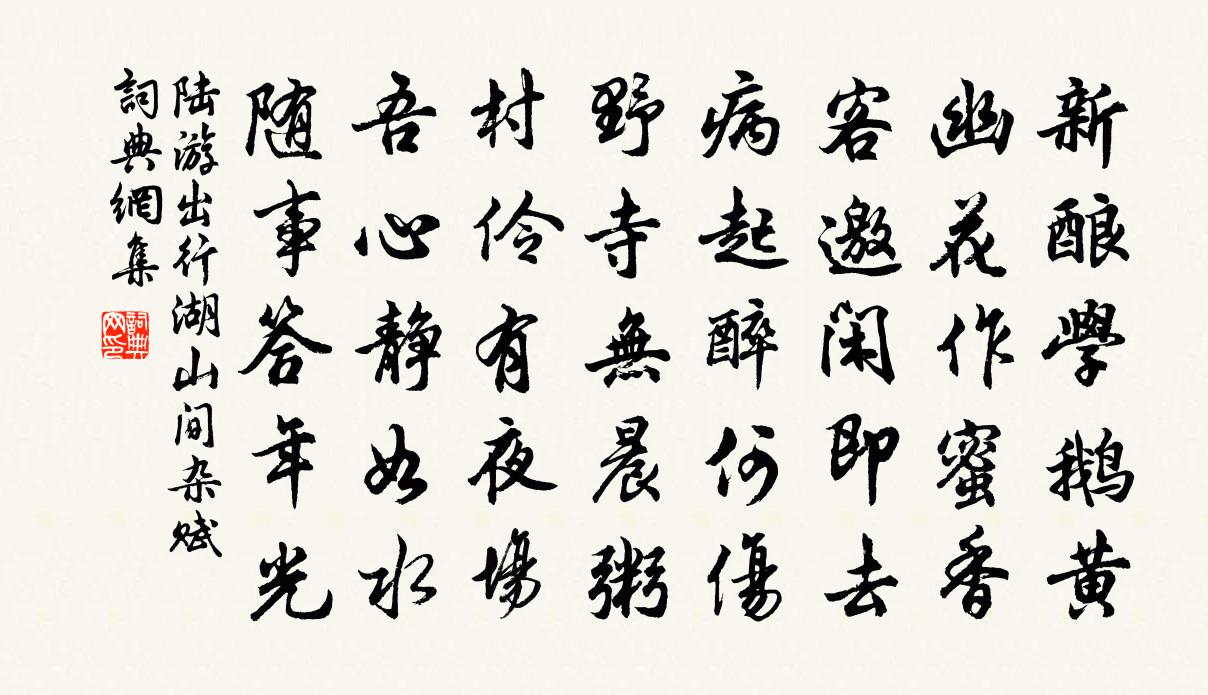 新酿學鹅黄
幽花作蜜香
客邀闲即去
病起醉何傷
野寺無晨粥
村伶有夜場
吾心静如水
随事答年光
陆游出行湖山间杂赋
詞典網集
詞典网印